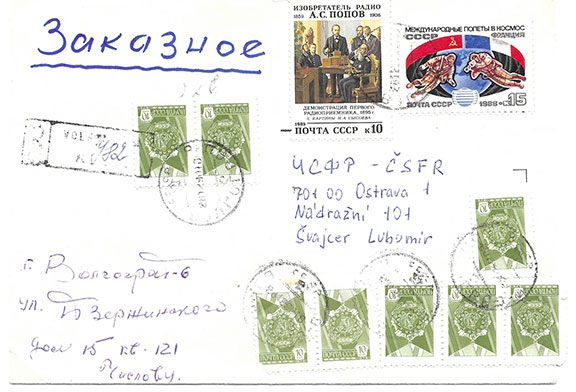 Заказное
ИЗОБРЕТАТЕЛЬ РАДИО
1859 А.С. ПОПОВ 1906
ДЕМОНСТРАЦИЯ ПЕРВОГО
РАДИОПРИЕМНИКА, 1895 г.
С КАРТИНЫ Н.А СЫСОЕВА
1989 ПОЧТА СССР К10
МЕЖДУНАРОДНЫЕ ПОЛЕТЫ В КОСМОС
СССР ФРАНЦИЯ
ПОЧТА СССР 1988 К15
ЧСФР - ČSFR
701 00 Ostrava 1
Nádražní 101
Švajcer Lubomír
г. Волгоград-6
ул. Дзержинского
дом 15 кв-121
ПОЧТА СССР
ПОЧТА СССР
ПОЧТА СССР
ПОЧТА СССР
ПОЧТА СССР